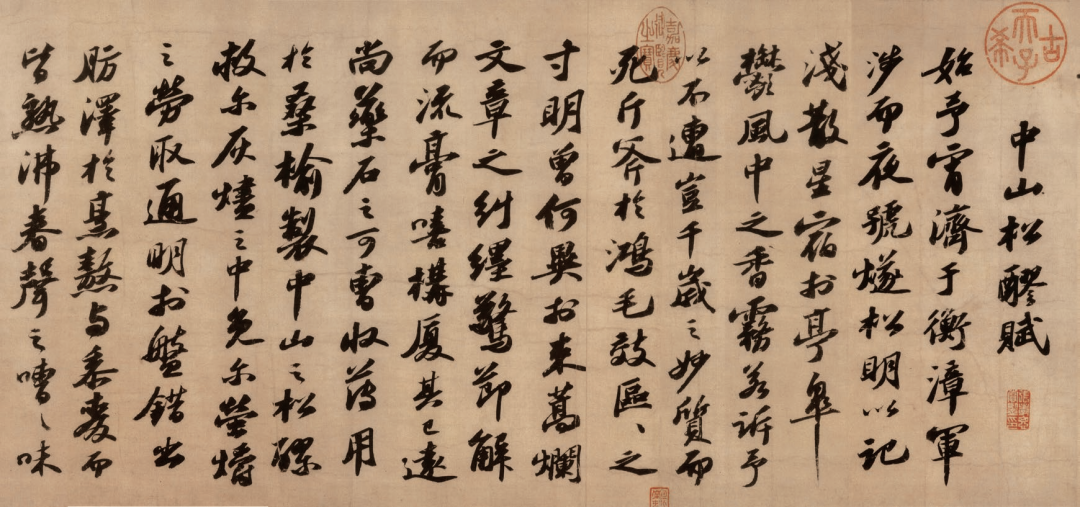 古希天子
中山松醪賦
始予宵濟于衡漳軍
涉而夜號燧松明以記
淺散星宿於亭皋
鬱風中之香霧若訴予
以不遭豈千歲之妙質而
嘉慶御覽之寶
死斤斧於鴻毛效區〻之
寸明曾何異於束蒿爛
文章之糾纏驚節解
而流膏嘻構廈其已遠
尚藥石之可曹收薄用
於桑榆製中山之松醪
救尔灰燼之中免尔螢爝
之勞取通明於盤錯出
肪澤於烹熬与黍麥而
皆熟沸舂聲之嘈〻味